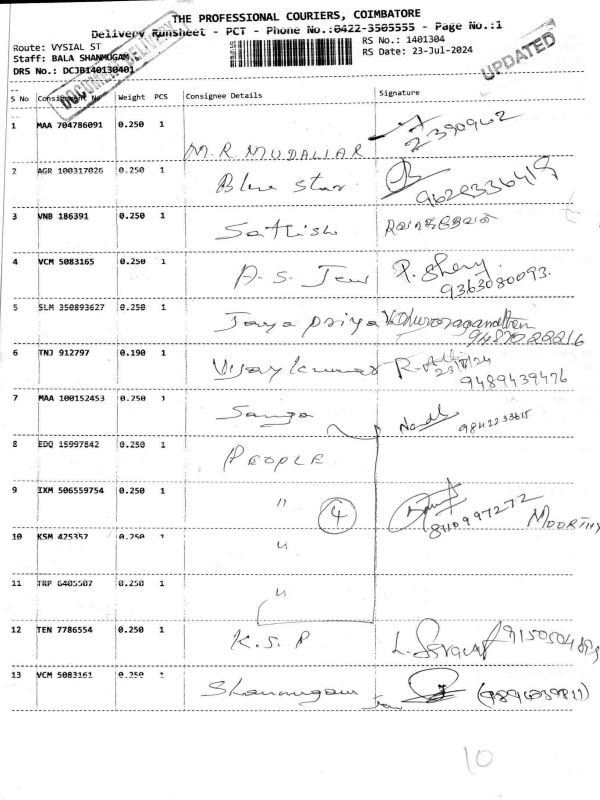 THE PROFESSIONAL COURIERS, COIMBATORE
Delivery Runsheet - PCT - Phone No.:0422-3505555 - Page No.:1
Route: VYSIAL ST
RS No.: 1401304
Staff: BALA SHANMUGAM
RS Date: 23-Jul-2024
DRS No.: DCJB140130401
DOCUMENT DELIVERY
UPDATED
S No Consignment No Weight PCS Consignee Details Signature
1 MAA 704786091 0.250 1 M.R. MUDALIAR 2390962
2 AGR 100317026 0.250 1 Blue Star 9629336419
3 VNB 186391 0.250 1 Sathish
4 VCM 5083165 0.250 1 A.S. Jew 9363080093.
5 SLM 350893627 0.250 1 Jaya priya
6 TNJ 912797 0.190 1 Vijay kumar 23/7/24 9489439476
7 MAA 100152453 0.250 1 9842233615
8 EDQ 15997842 0.250 1 PEOPLE
9 IXM 506559754 0.250 1 " 4 8110997272 MOORTHY
10 KSM 425357 0.250 1 "
11 TRP 6405507 0.250 1 "
12 TEN 7786554 0.250 1 K.S.P
13 VCM 5083161 0.250 1 Shanmugam
10